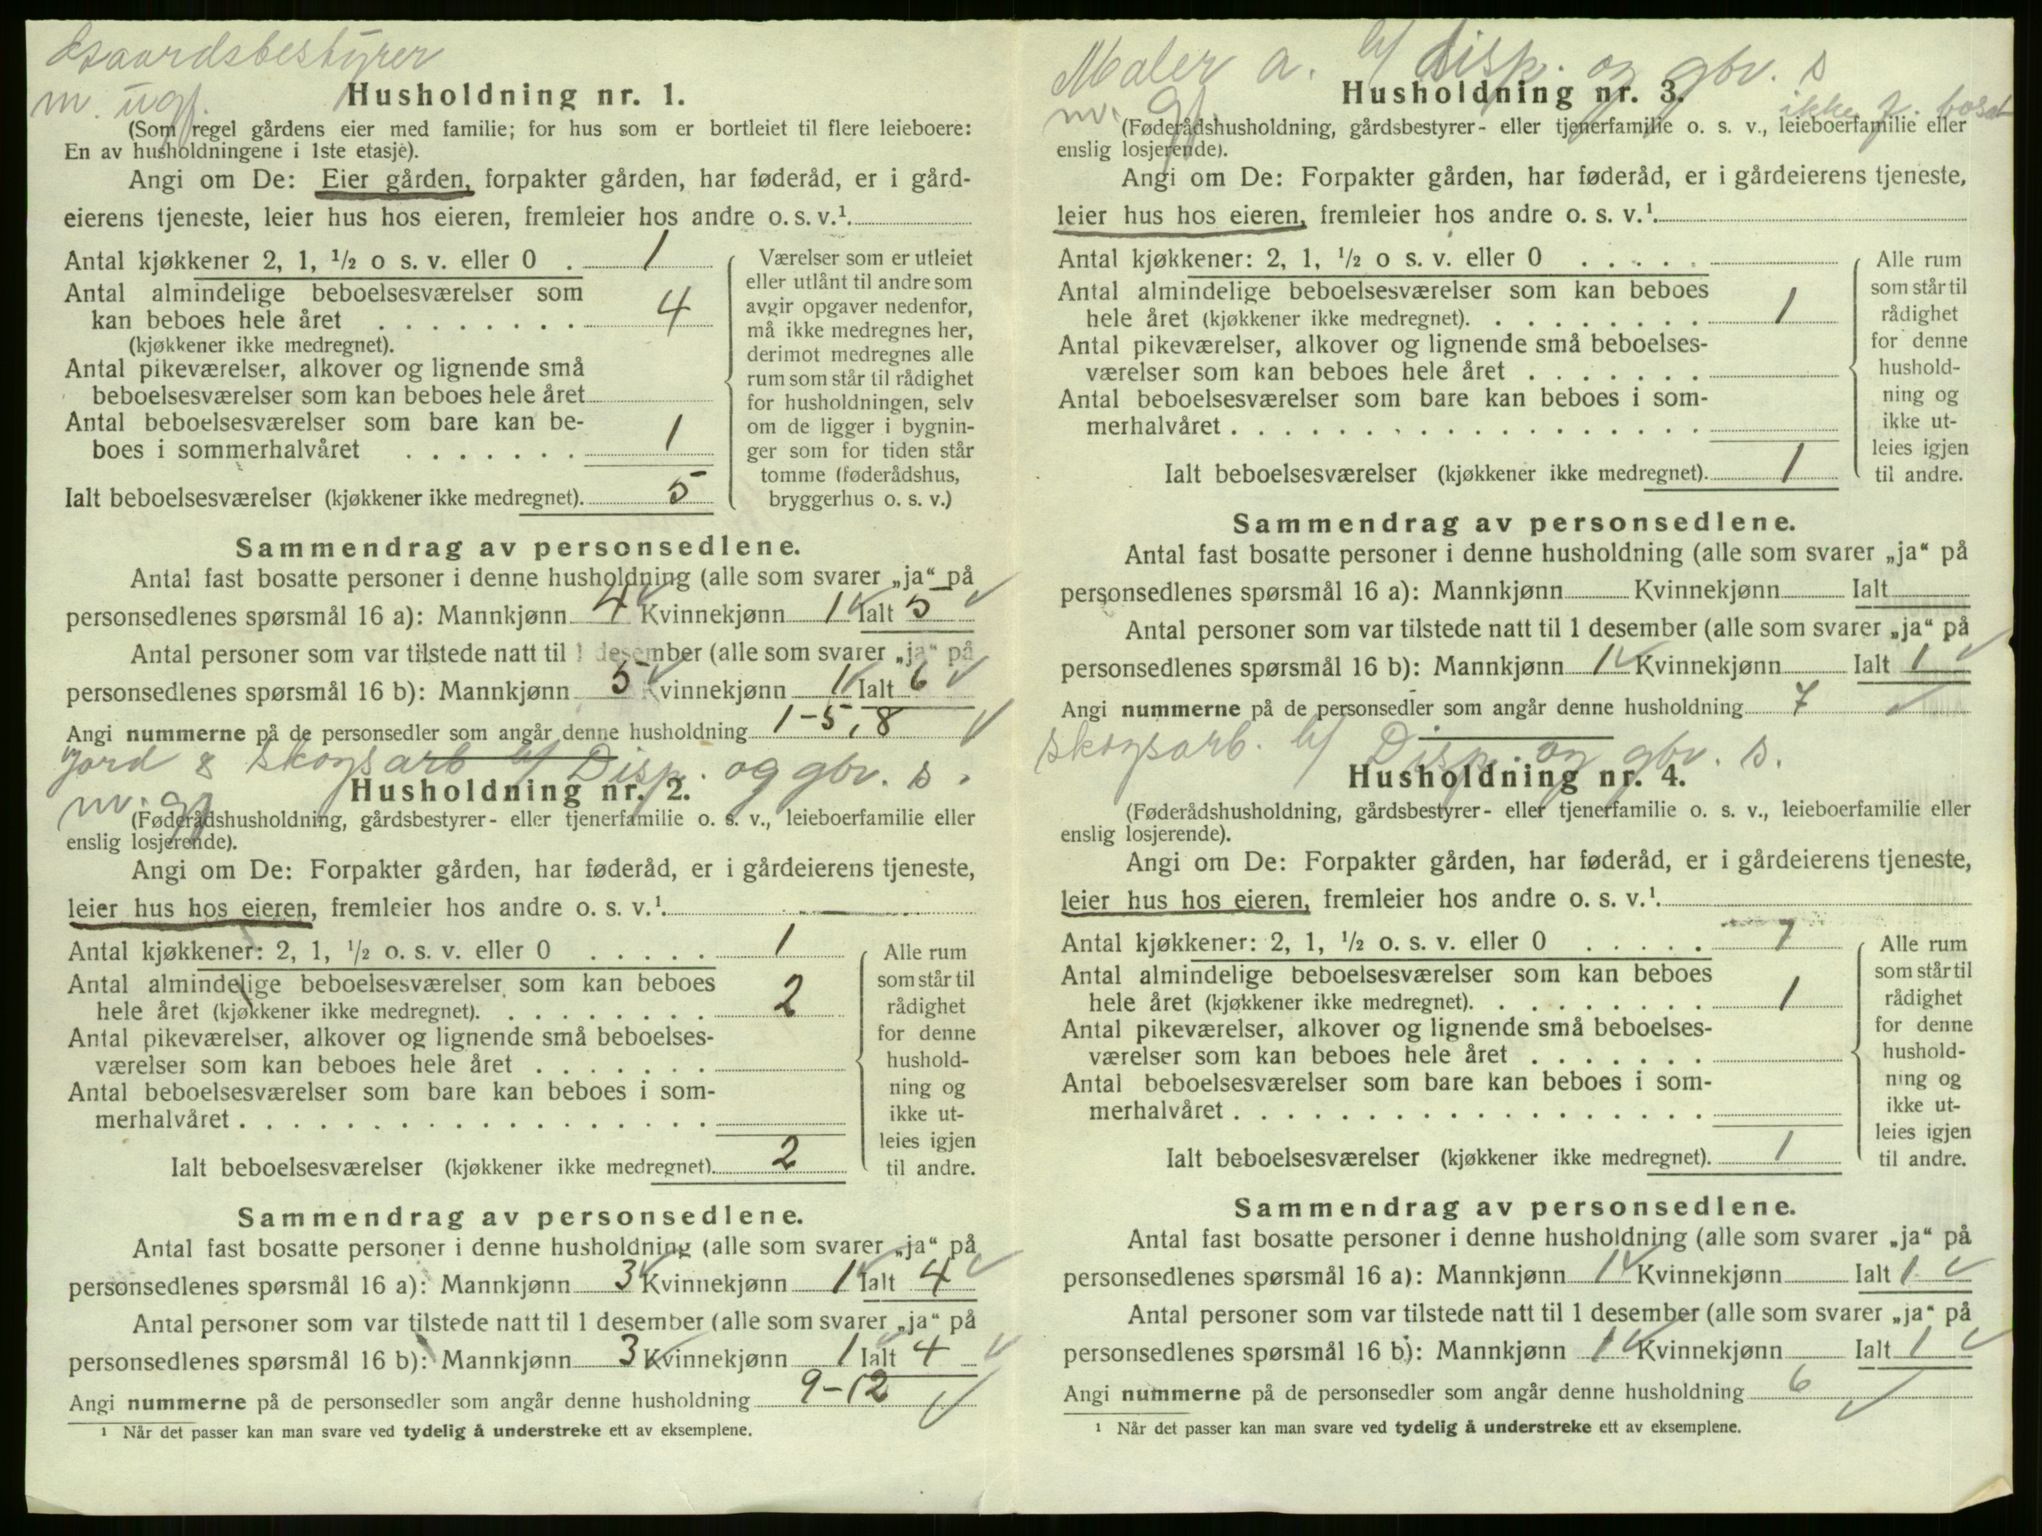 Gaardsbestyrer
m. ugf.
Husholdning nr. 1.
(Som regel gårdens eier med familie; for hus som er bortleiet til flere leieboere:
En av husholdningene i 1ste etasje).
Angi om De: Eier gården, forpakter gården, har føderåd, er i gård-
eierens tjeneste, leier hus hos eieren, fremleier hos andre o. s. v.¹.
Antal kjøkkener 2, 1, ½ o s. v. eller 0 . 1
Antal almindelige beboelsesværelser som
kan beboes hele året . . . . . . . . 4
(kjøkkener ikke medregnet).
Antal pikeværelser, alkover og lignende små
beboelsesværelser som kan beboes hele året
Antal beboelsesværelser som bare kan be-
boes i sommerhalvåret . . . . . . . 1
Ialt beboelsesværelser (kjøkkener ikke medregnet). 5
Værelser som er utleiet
eller utlånt til andre som
avgir opgaver nedenfor,
må ikke medregnes her,
derimot medregnes alle
rum som står til rådighet
for husholdningen, selv
om de ligger i bygnin-
ger som for tiden står
tomme (føderådshus,
bryggerhus o. s. v.)
Sammendrag av personsedlene.
Antal fast bosatte personer i denne husholdning (alle som svarer „ja“ på
personsedlenes spørsmål 16 a): Mannkjønn 4 Kvinnekjønn 1 Ialt 5
Antal personer som var tilstede natt til 1 desember (alle som svarer „ja“ på
personsedlenes spørsmål 16 b): Mannkjønn 5 Kvinnekjønn 1 Ialt 6
Angi nummerne på de personsedler som angår denne husholdning 1-5, 8
Jord & skogsarb b/ Disp. og gbr. s.
m. gf
Husholdning nr. 2.
(Føderådshusholdning, gårdsbestyrer- eller tjenerfamilie o. s. v., leieboerfamilie eller
enslig losjerende).
Angi om De: Forpakter gården, har føderåd, er i gårdeierens tjeneste,
leier hus hos eieren, fremleier hos andre o. s. v.¹.
Antal kjøkkener: 2, 1, ½ o. s. v. eller 0 . . . . . 1
Antal almindelige beboelsesværelser som kan beboes
hele året (kjøkkener ikke medregnet). . . . . . . . . 2
Antal pikeværelser, alkover og lignende små beboelses-
værelser som kan beboes hele året . . . . . . .
Antal beboelsesværelser som bare kan beboes i som-
merhalvåret . . . . . . . . . . . . . . . . . .
Ialt beboelsesværelser (kjøkkener ikke medregnet). 2
Alle rum
som står til
rådighet
for denne
hushold-
ning og
ikke ut-
leies igjen
til andre.
Sammendrag av personsedlene.
Antal fast bosatte personer i denne husholdning (alle som svarer „ja“ på
personsedlenes spørsmål 16 a): Mannkjønn 3 Kvinnekjønn 1 Ialt 4
Antal personer som var tilstede natt til 1 desember (alle som svarer „ja“ på
personsedlenes spørsmål 16 b): Mannkjønn 3 Kvinnekjønn 1 Ialt 4
Angi nummerne på de personsedler som angår denne husholdning 9-12
¹ Når det passer kan man svare ved tydelig å understreke ett av eksemplene.
Maler a. b/ disp. og gbr. s
m. gf. ikke f. bosat
Husholdning nr. 3.
(Føderådshusholdning, gårdsbestyrer- eller tjenerfamilie o. s. v., leieboerfamilie eller
enslig losjerende).
Angi om De: Forpakter gården, har føderåd, er i gårdeierens tjeneste,
leier hus hos eieren, fremleier hos andre o. s. v.¹.
Antal kjøkkener: 2, 1, ½ o s. v. eller 0 . . . . .
Antal almindelige beboelsesværelser som kan beboes
hele året (kjøkkener ikke medregnet). . . . . . . . . 1
Antal pikeværelser, alkover og lignende små beboelses-
værelser som kan beboes hele året . . . . . . .
Antal beboelsesværelser som bare kan beboes i som-
merhalvåret . . . . . . . . . . . . . . . . . .
Ialt beboelsesværelser (kjøkkener ikke medregnet). 1
Alle rum
som står til
rådighet
for denne
hushold-
ning og
ikke ut-
leies igjen
til andre.
Sammendrag av personsedlene.
Antal fast bosatte personer i denne husholdning (alle som svarer „ja“ på
personsedlenes spørsmål 16 a): Mannkjønn Kvinnekjønn Ialt
Antal personer som var tilstede natt til 1 desember (alle som svarer „ja“ på
personsedlenes spørsmål 16 b): Mannkjønn 1 Kvinnekjønn Ialt 1
Angi nummerne på de personsedler som angår denne husholdning 7
skogsarb. b/ Disp. og gbr. s.
Husholdning nr. 4.
(Føderådshusholdning, gårdsbestyrer- eller tjenerfamilie o. s. v., leieboerfamilie eller
enslig losjerende).
Angi om De: Forpakter gården, har føderåd, er i gårdeierens tjeneste,
leier hus hos eieren, fremleier hos andre o. s. v.¹.
Antal kjøkkener: 2, 1, ½ o. s. v. eller 0 . . . . . 1
Antal almindelige beboelsesværelser som kan beboes
hele året (kjøkkener ikke medregnet). . . . . . . . . 1
Antal pikeværelser, alkover og lignende små beboelses-
værelser som kan beboes hele året . . . . . . .
Antal beboelsesværelser som bare kan beboes i som-
merhalvåret . . . . . . . . . . . . . . . . . .
Ialt beboelsesværelser (kjøkkener ikke medregnet). 1
Alle rum
som står til
rådighet
for denne
hushold-
ning og
ikke ut-
leies igjen
til andre.
Sammendrag av personsedlene.
Antal fast bosatte personer i denne husholdning (alle som svarer „ja“ på
personsedlenes spørsmål 16 a): Mannkjønn 1 Kvinnekjønn Ialt 1
Antal personer som var tilstede natt til 1 desember (alle som svarer „ja“ på
personsedlenes spørsmål 16 b): Mannkjønn 1 Kvinnekjønn Ialt 1
Angi nummerne på de personsedler som angår denne husholdning 6
¹ Når det passer kan man svare ved tydelig å understreke ett av eksemplene.